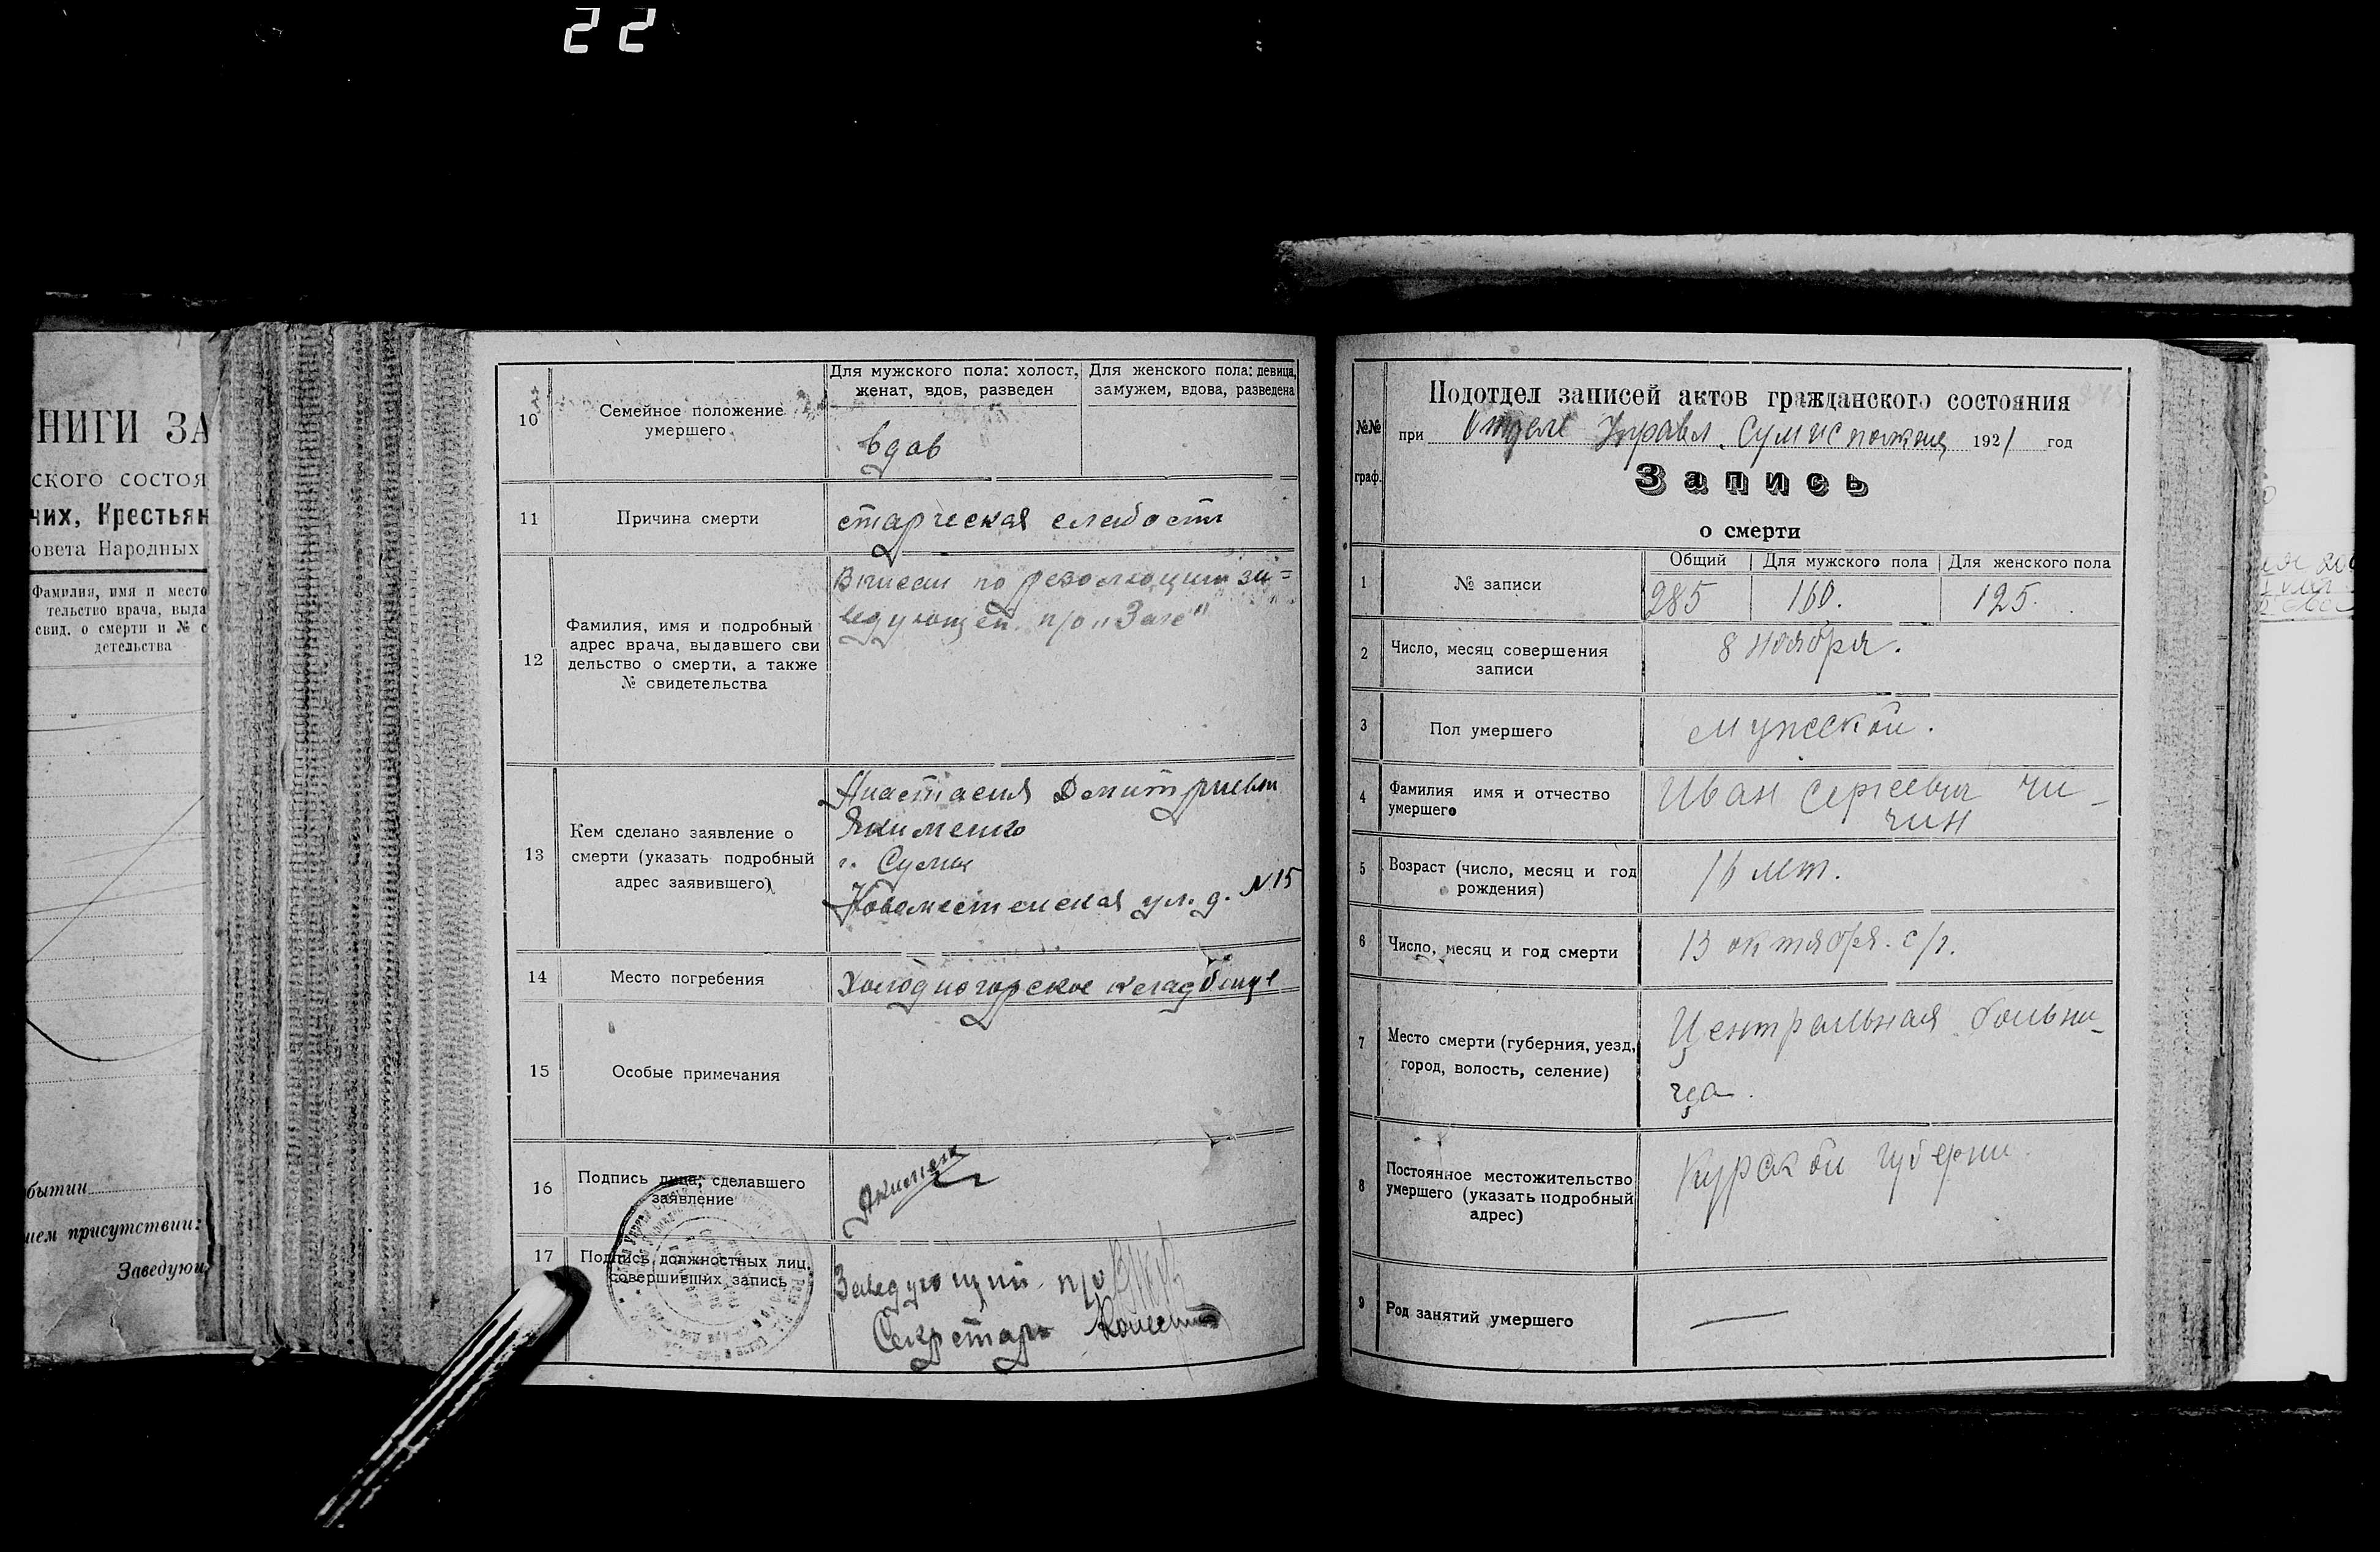 22
НИГИ ЗА
ского состоя
чих, Крестьян
овета Народных
Фамилия, имя и место
тельство врача, выда
свид. о смерти и № с
детельства
бытии
ием присутствии:
Заведующ
10
Семейное положение
умершего
Для мужского пола: холост,
женат, вдов, разведен
Для женского пола: девица,
замужем, вдова, разведена
вдов
11
Причина смерти
старческая слабость
12
Фамилия, имя и подробный
адрес врача, выдавшего сви
дельство о смерти, а также
№ свидетельства
по резолюции за=
ведующей п/о „Загс"
13
Кем сделано заявление о
смерти (указать подробный
адрес заявившего)
Анастасия Демитриевн
Якименко
г. Сумы
ул. д. N15
14
Место погребения
Холодногорское кладбище
15
Особые примечания
16
Подпись лица, сделавшего
заявление
Якименк
17
Подпись должностных лиц,
совершивших запись
Заведующий п/о
Секретарь
№№
граф.
Подотдел записей актов гражданского состояния
при Отделе Управл. 1921 год
Запись
о смерти
1
№ записи
Общий
Для мужского пола
Для женского пола
285
160.
125.
2
Число, месяц совершения
записи
8 ноября.
3
Пол умершего
мужской.
4
Фамилия имя и отчество
умершего
Иван Сергеевич Чи-
чин
5
Возраст (число, месяц и год
рождения)
16 лет.
6
Число, месяц и год смерти
13 октября. с/г.
7
Место смерти (губерния, уезд,
город, волость, селение)
Центральная больни-
ца.
8
Постоянное местожительство
умершего (указать подробный
адрес)
Курской губерни.
9
Род занятий умершего
—